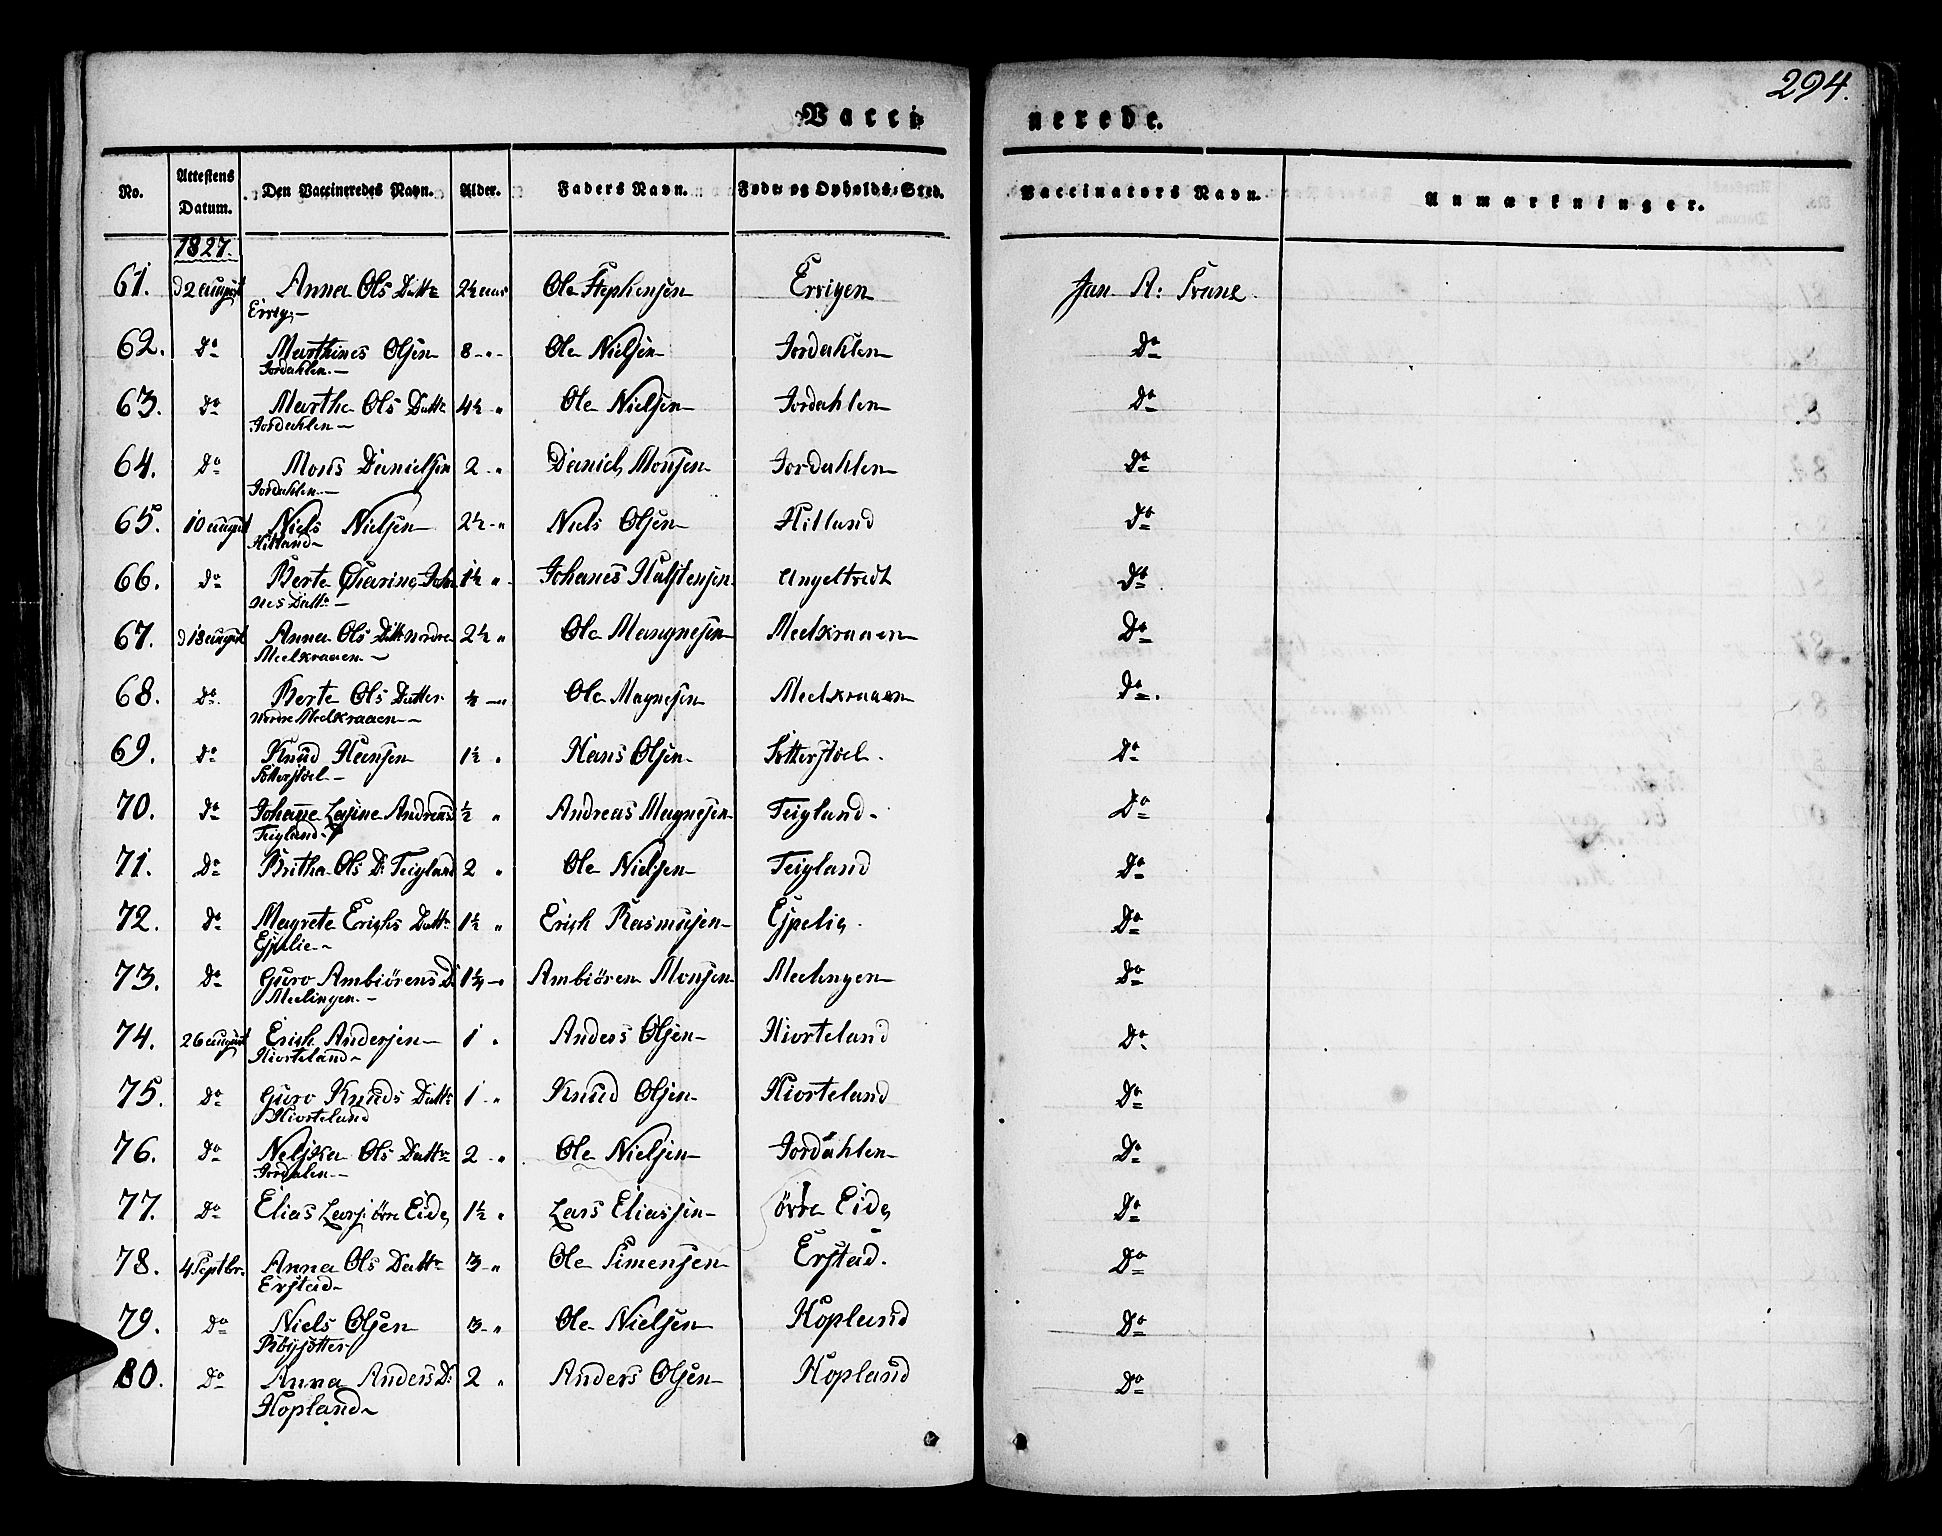 294.
Vaccinerede.
No. Attestens Datum. Den Vaccineredes Navn. Alder. Faders Navn. Føde- og Opholds-Sted. Vaccinators Navn. Anmærkninger.
1827.
61. d 2 august Anna Ols Datt. 2½ aar Ole Stephensen Errigen Jan A:
62. Do Marthines Olsen 8 - " - Ole Nielsen Jordahlen Do
Jordahlen. —
63. Do Martha Ols Datt 4½ " Ole Nielsen Jordahlen Do
Jordahlen —
64. Do Mons Danielsen 2 - " Daniel Monsen Jordahlen Do
Jordahlen —
65. 10 august Niels Nielsen 2½ - " Niels Olsen Hilland Do
Hilland —
66. Do Berte Johan 1½ " Johanes Halstensen Angeltvedt Do
nes Datt. —
67. d 18 august Anna Ols Datt nordre 2½ " Ole Mangnesen Meelkraaen Do
Meelkraaen —
68. Do Berte Ols Datter Ole Magnesen Meelkraaen Do.
Nordre Meelkraaen —
69. Do Knud Hansen 1½ " Hans Olsen Do
70. Do Andreas ½ " Andreas Magnesen Teigland - Do
Teigland -
71. Do Britha Ols D: Teigland 2 " Ole Nielsen Teigland Do
72. Do Magrete Erichs Datt. 1½ " Erich Rasmusen Espelie Do
Espelie -
73. Do Guro Ambiörens D: Ambiören Monsen Meelingen Do
Meelingen. -
74. 26 august Erich Andersen 1 " Anders Olsen Hiorteland Do
Hiorteland -
75. Do Guro Knuds Datt. 1 - " Knud Olsen Hiorteland Do
Hiorteland
76. Do Ols Datt. 2 - " Ole Nielsen Jordahlen Do
Jordalen -
77. Do Elias Lars: övre Eide 1½ " Lars Eliassen övre Eide Do
78. 4 Septbr. Anna Ols Datt. 3 - " Ole Simensen Erstad. Do
Erstad -
79. Do Niels Olsen 3 - " Ole Nielsen Hopland Do
80. Do Anna Anders D: 2 " Anders Olsen Hopland Do
Hopland -